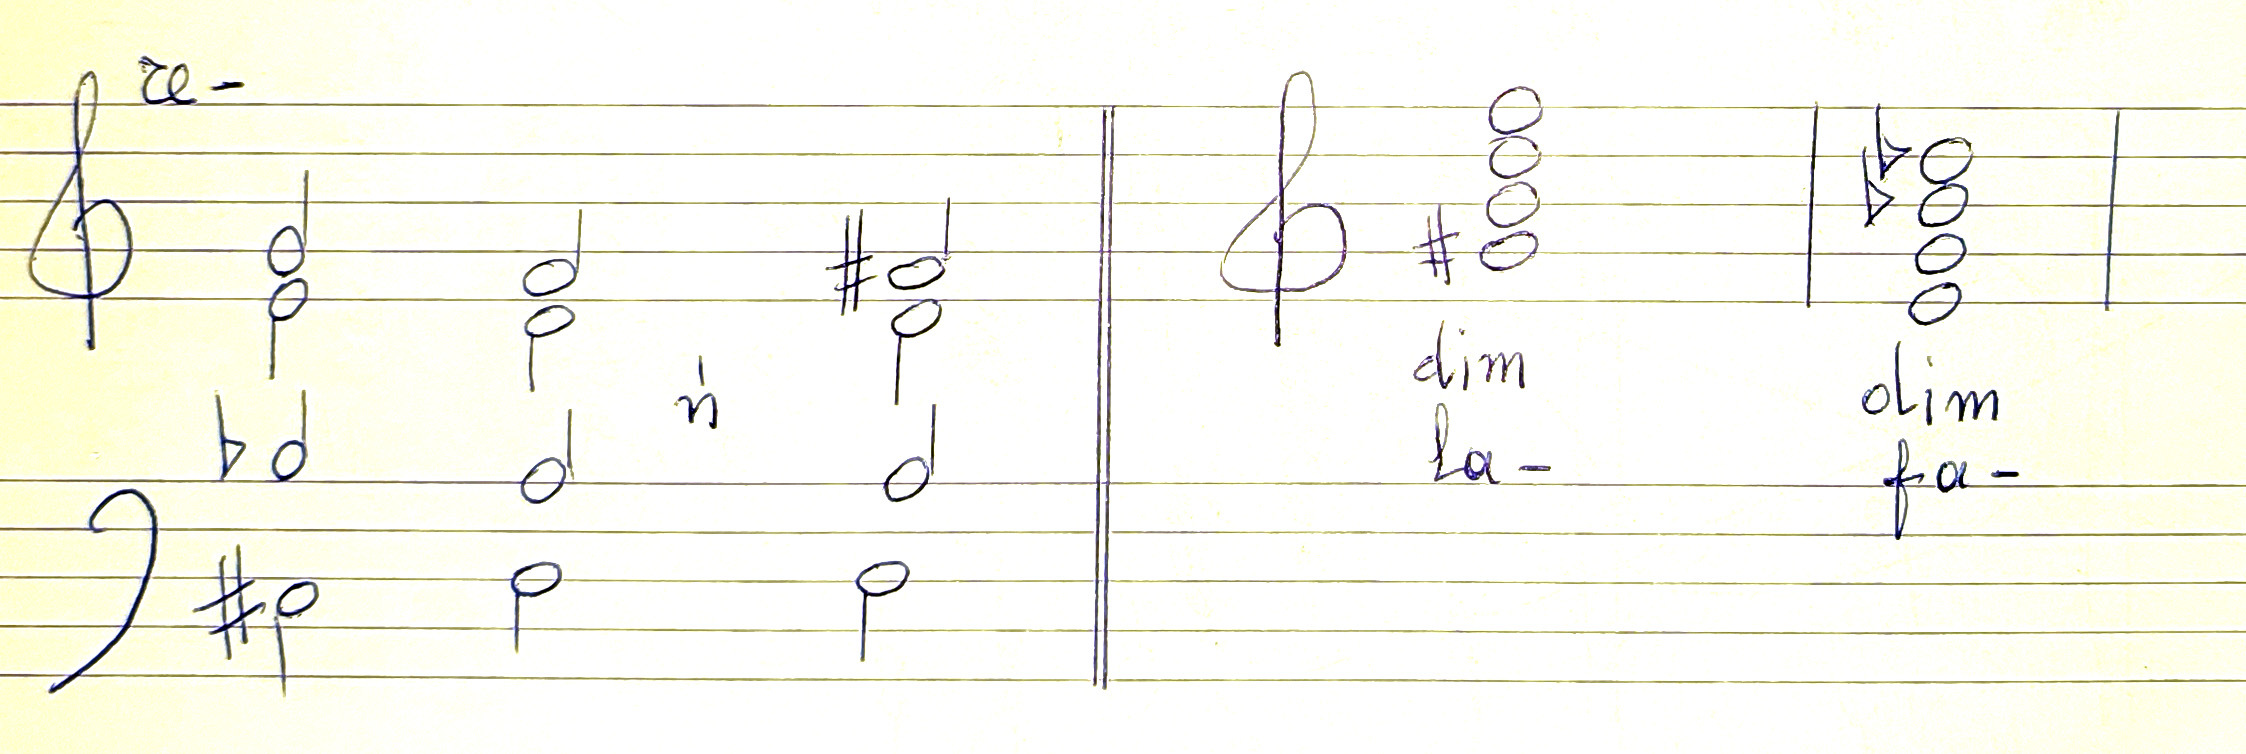 re -
ή
dim
dim
la -
fa -